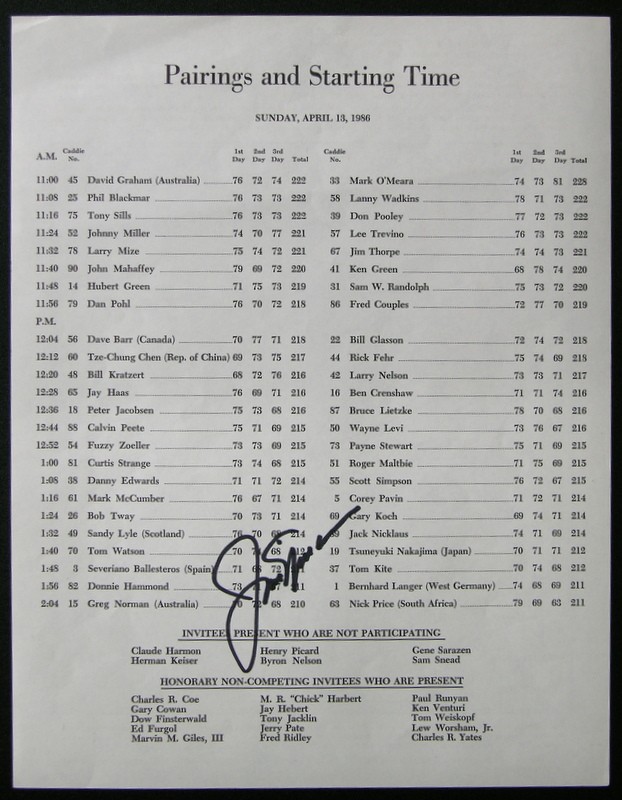 Pairings and Starting Time
SUNDAY, APRIL 13, 1986
A.M. Caddie No. 1st Day 2nd Day 3rd Day Total Caddie No. 1st Day 2nd Day 3rd Day Total
11:00 45 David Graham (Australia) 76 72 74 222 33 Mark O'Meara 74 73 81 228
11:08 25 Phil Blackmar 76 73 73 222 58 Lanny Wadkins 78 71 73 222
11:16 75 Tony Sills 76 73 73 222 39 Don Pooley 77 72 73 222
11:24 52 Johnny Miller 74 70 77 221 57 Lee Trevino 76 73 73 222
11:32 78 Larry Mize 75 74 72 221 67 Jim Thorpe 74 74 73 221
11:40 90 John Mahaffey 79 69 72 220 41 Ken Green 68 78 74 220
11:48 14 Hubert Green 71 75 73 219 31 Sam W. Randolph 75 73 72 220
11:56 79 Dan Pohl 76 70 72 218 86 Fred Couples 72 77 70 219
P.M.
12:04 56 Dave Barr (Canada) 70 77 71 218 22 Bill Glasson 72 74 72 218
12:12 60 Tze-Chung Chen (Rep. of China) 69 73 75 217 44 Rick Fehr 75 74 69 218
12:20 48 Bill Kratzert 68 72 76 216 42 Larry Nelson 73 73 71 217
12:28 65 Jay Haas 76 69 71 216 16 Ben Crenshaw 71 71 74 216
12:36 18 Peter Jacobsen 75 73 68 216 87 Bruce Lietzke 78 70 68 216
12:44 88 Calvin Peete 75 71 69 215 50 Wayne Levi 73 76 67 216
12:52 54 Fuzzy Zoeller 73 73 69 215 73 Payne Stewart 75 71 69 215
1:00 81 Curtis Strange 73 74 68 215 51 Roger Maltbie 71 75 69 215
1:08 38 Danny Edwards 71 71 72 214 55 Scott Simpson 76 72 67 215
1:16 61 Mark McCumber 76 67 71 214 5 Corey Pavin 71 72 71 214
1:24 26 Bob Tway 70 73 71 214 69 Gary Koch 69 74 71 214
1:32 49 Sandy Lyle (Scotland) 76 70 214 Jack Nicklaus 74 71 69 214
1:40 70 Tom Watson 70 68 212 19 Tsuneyuki Nakajima (Japan) 70 71 71 212
1:48 3 Severiano Ballesteros (Spain) 71 68 72 37 Tom Kite 70 74 68 212
1:56 82 Donnie Hammond 73 1 Bernhard Langer (West Germany) 74 68 69 211
2:04 15 Greg Norman (Australia) 68 210 63 Nick Price (South Africa) 79 69 63 211
INVITEES PRESENT WHO ARE NOT PARTICIPATING
Claude Harmon Henry Picard Gene Sarazen
Herman Keiser Byron Nelson Sam Snead
HONORARY NON-COMPETING INVITEES WHO ARE PRESENT
Charles R. Coe M. R. "Chick" Harbert Paul Runyan
Gary Cowan Jay Hebert Ken Venturi
Dow Finsterwald Tony Jacklin Tom Weiskopf
Ed Furgol Jerry Pate Lew Worsham, Jr.
Marvin M. Giles, III Fred Ridley Charles R. Yates